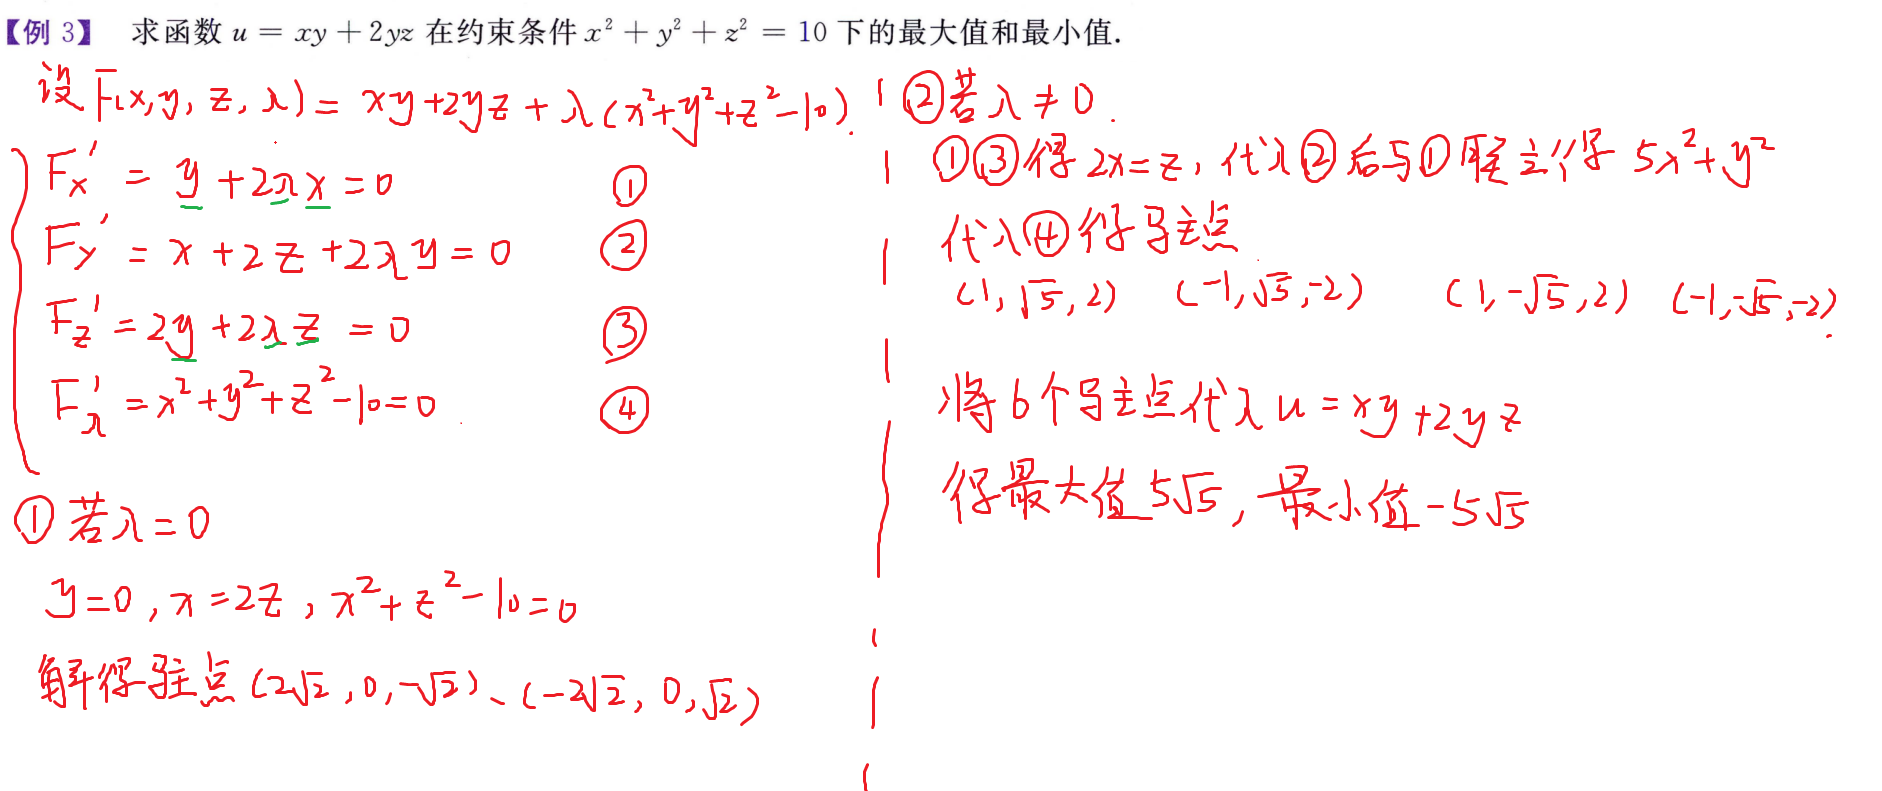 【例 3】 求函数 u = xy + 2yz 在约束条件 x² + y² + z² = 10 下的最大值和最小值.
设 F(x,y,z,λ) = xy+2yz+λ(x²+y²+z²-10).
F'x = y+2λx=0 ①
F'y = x+2z+2λy=0 ②
F'z = 2y+2λz=0 ③
F'λ = x²+y²+z²-10=0 ④
① 若λ=0
y=0, x=2z, x²+z²-10=0
解得驻点(2√2,0,-√2)、(-2√2,0,√2)
②若λ≠0.
①③得 2x=z, 代入②后与①联立得 5x²+y²
代入④得驻点
(1,√5,2) (-1,√5,-2) (1,-√5,2) (-1,-√5,-2).
将6个驻点代入 u=xy+2yz
得最大值 5√5, 最小值 -5√5